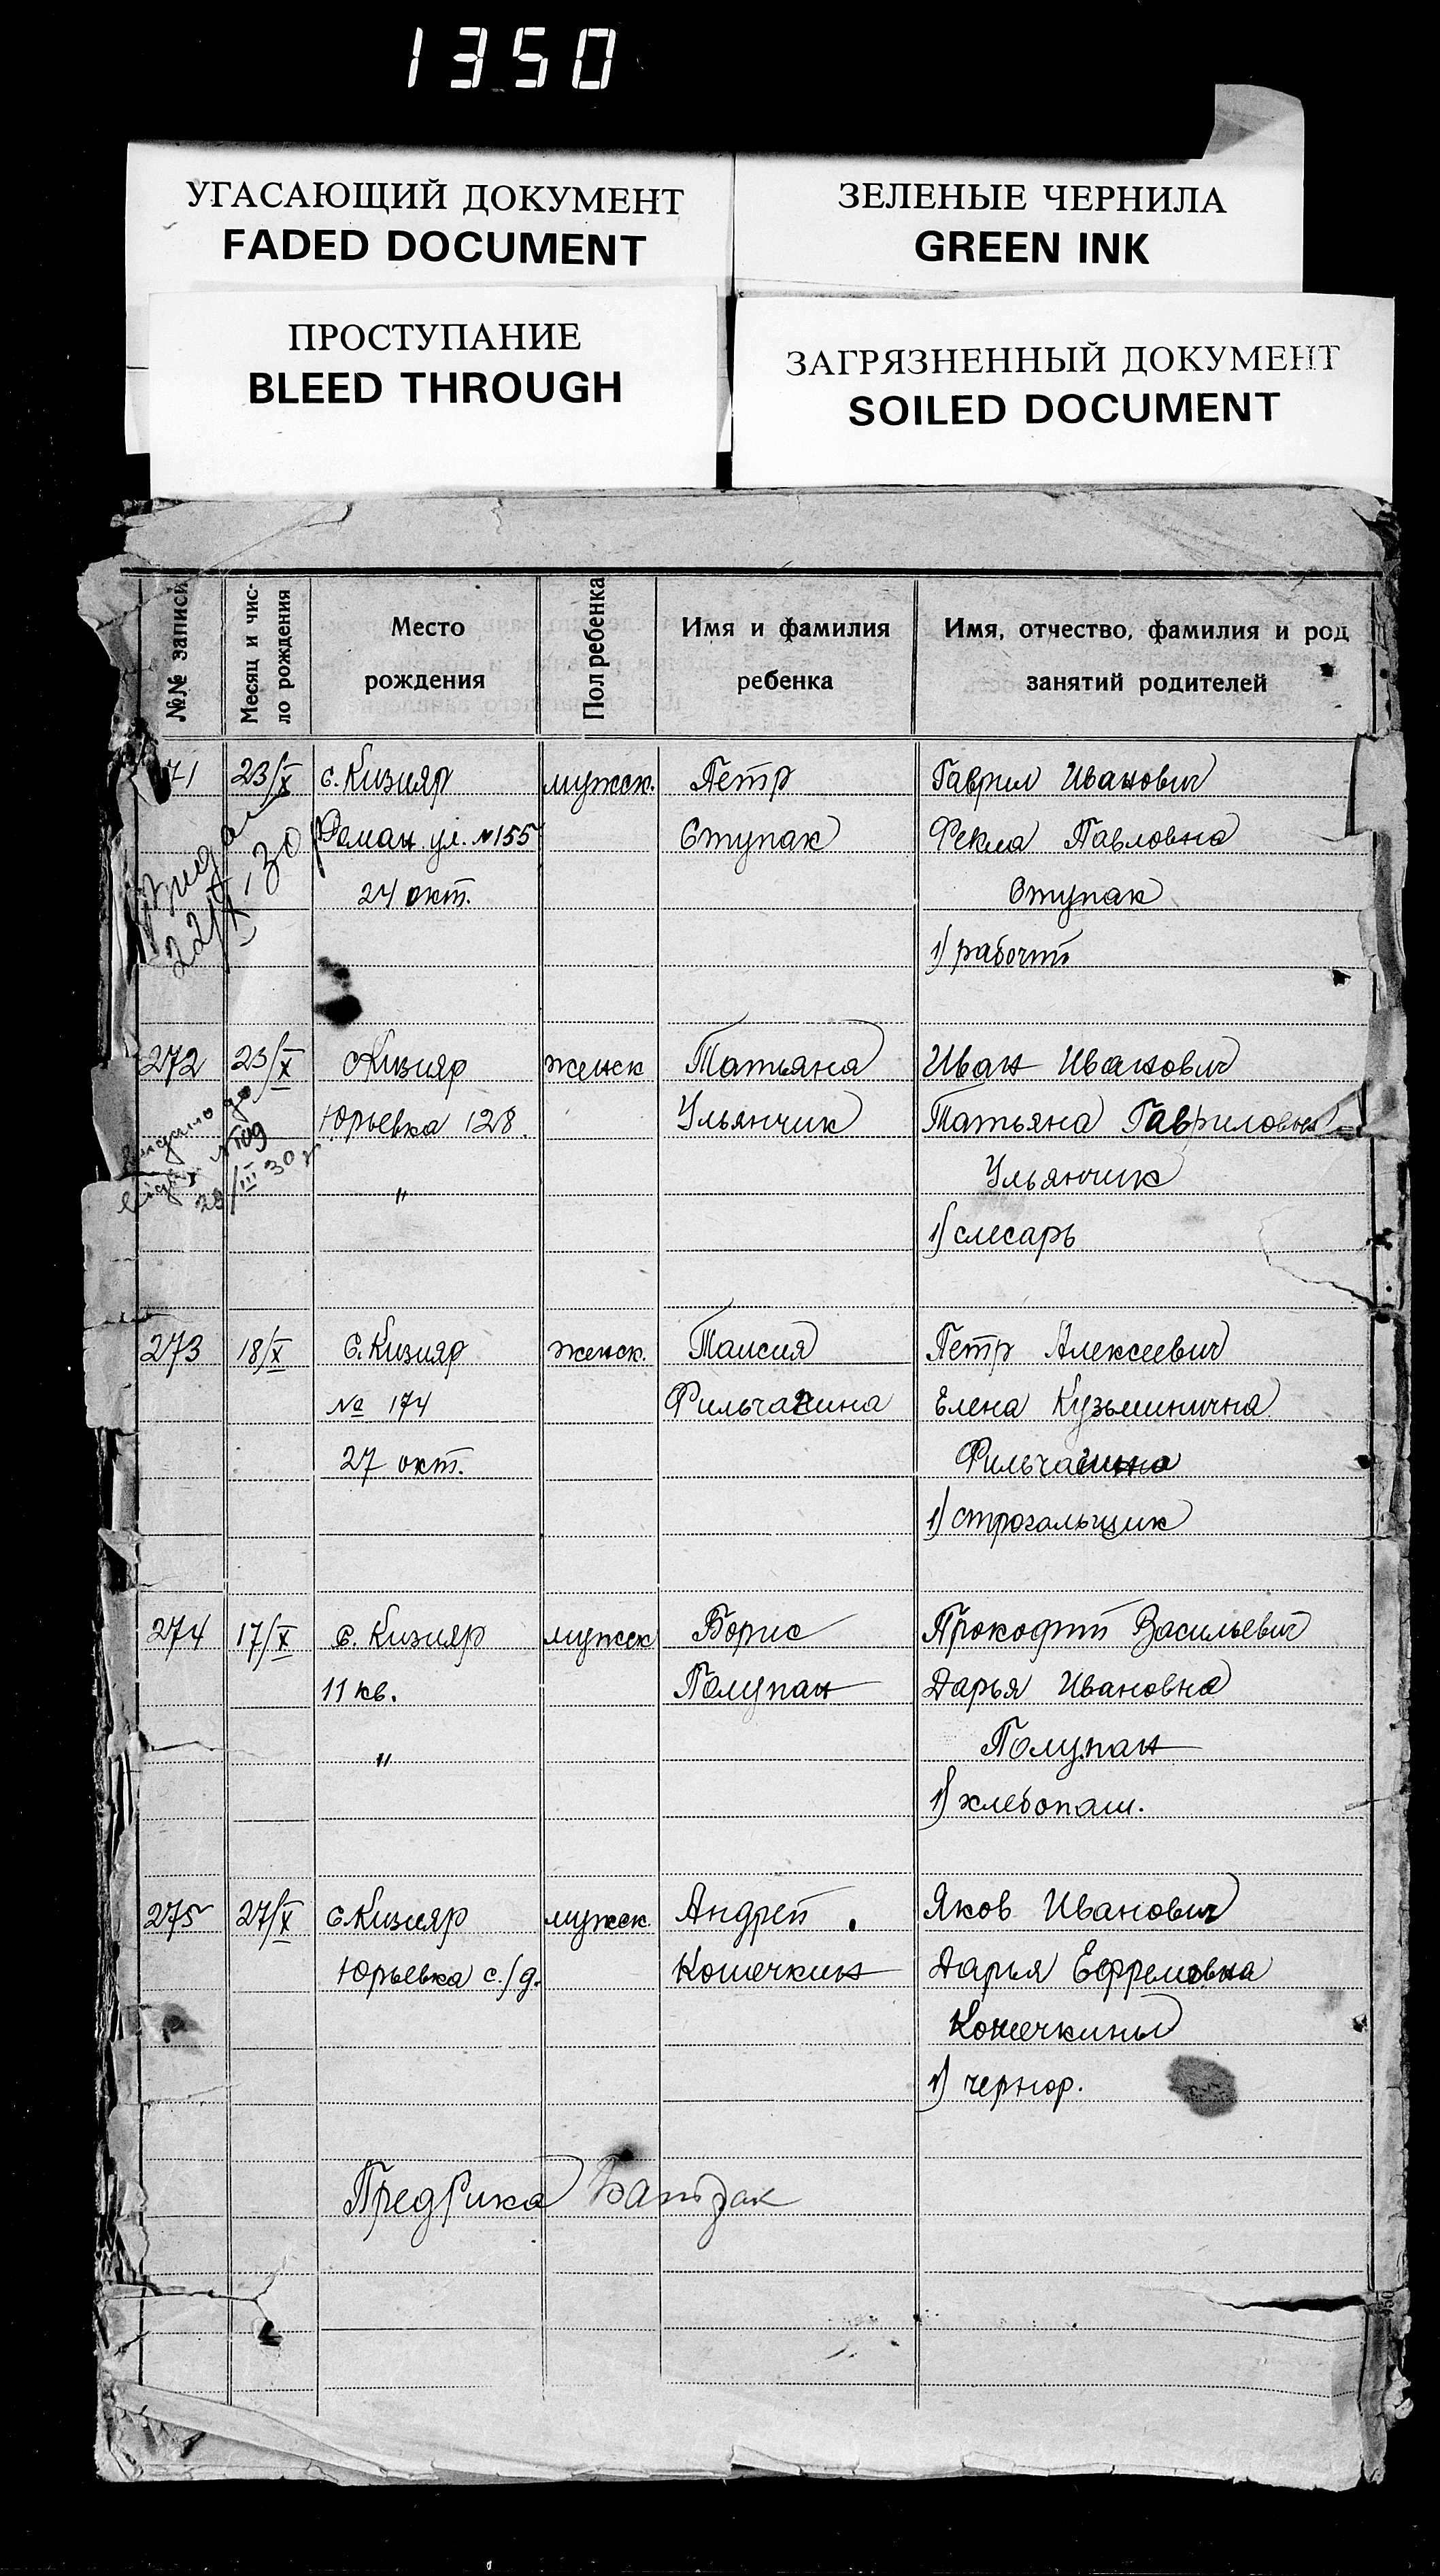 1350
УГАСАЮЩИЙ ДОКУМЕНТ
FADED DOCUMENT
ЗЕЛЕНЫЕ ЧЕРНИЛА
GREEN INK
ПРОСТУПАНИЕ
BLEED THROUGH
ЗАГРЯЗНЕННЫЙ ДОКУМЕНТ
SOILED DOCUMENT
№№ записи
Месяц и чис-
ло рождения
Место
рождения
Пол ребенка
Имя и фамилия
ребенка
Имя, отчество, фамилия и род
занятий родителей
71 23/X с. Кизияр мужск. Петр Гаврил Иванович
ул. №155 Ступак Фекла Павловна
24 окт. Ступак
1) рабочий
272 23/X с. Кизияр женск Татьяна Иван Иванович
Юрьевка 128. Ульянчик Татьяна Гавриловна
" Ульянчик
1) слесарь
273 18/X с. Кизияр женск. Таисия Петр Алексеевич
№ 174 Елена Кузьминична
27 окт.
1) строгальщик
274 17/X с. Кизияр мужск Борис Прокофий Васильевич
11 кв. Полупан Дарья Ивановна
" Полупан
1) хлебопаш.
275 27/X с. Кизияр мужск. Андрей. Яков Иванович
Юрьевка с./д. Кошечкин Дарья Ефремовна
Кошечкины
1) чернор.